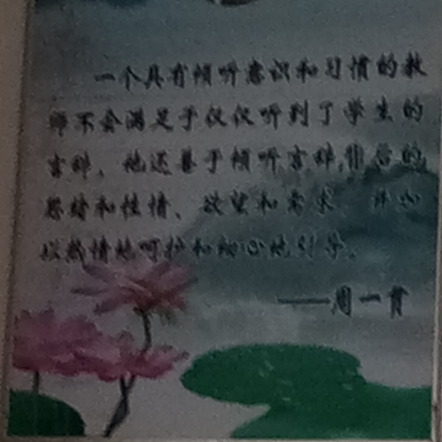 一个具有倾听意识和习惯的教
师不会满足于仅仅听到了学生的
言辞，他还善于倾听言辞背后的
思绪和性情、欲望和需求，并加
以热情地呵护和细心地引导。
——周一贯